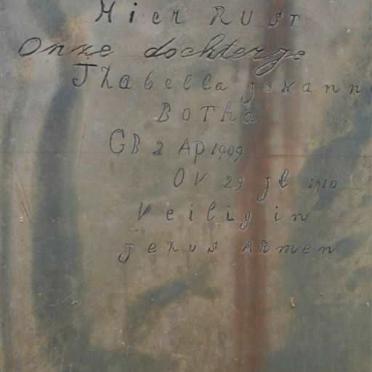 Hier RUST
Onze dochterge
Izabella Johann
Botha
GB 2 Ap 1909
OV 29 Jl 1910
Veilig in
Jezus ARMEN